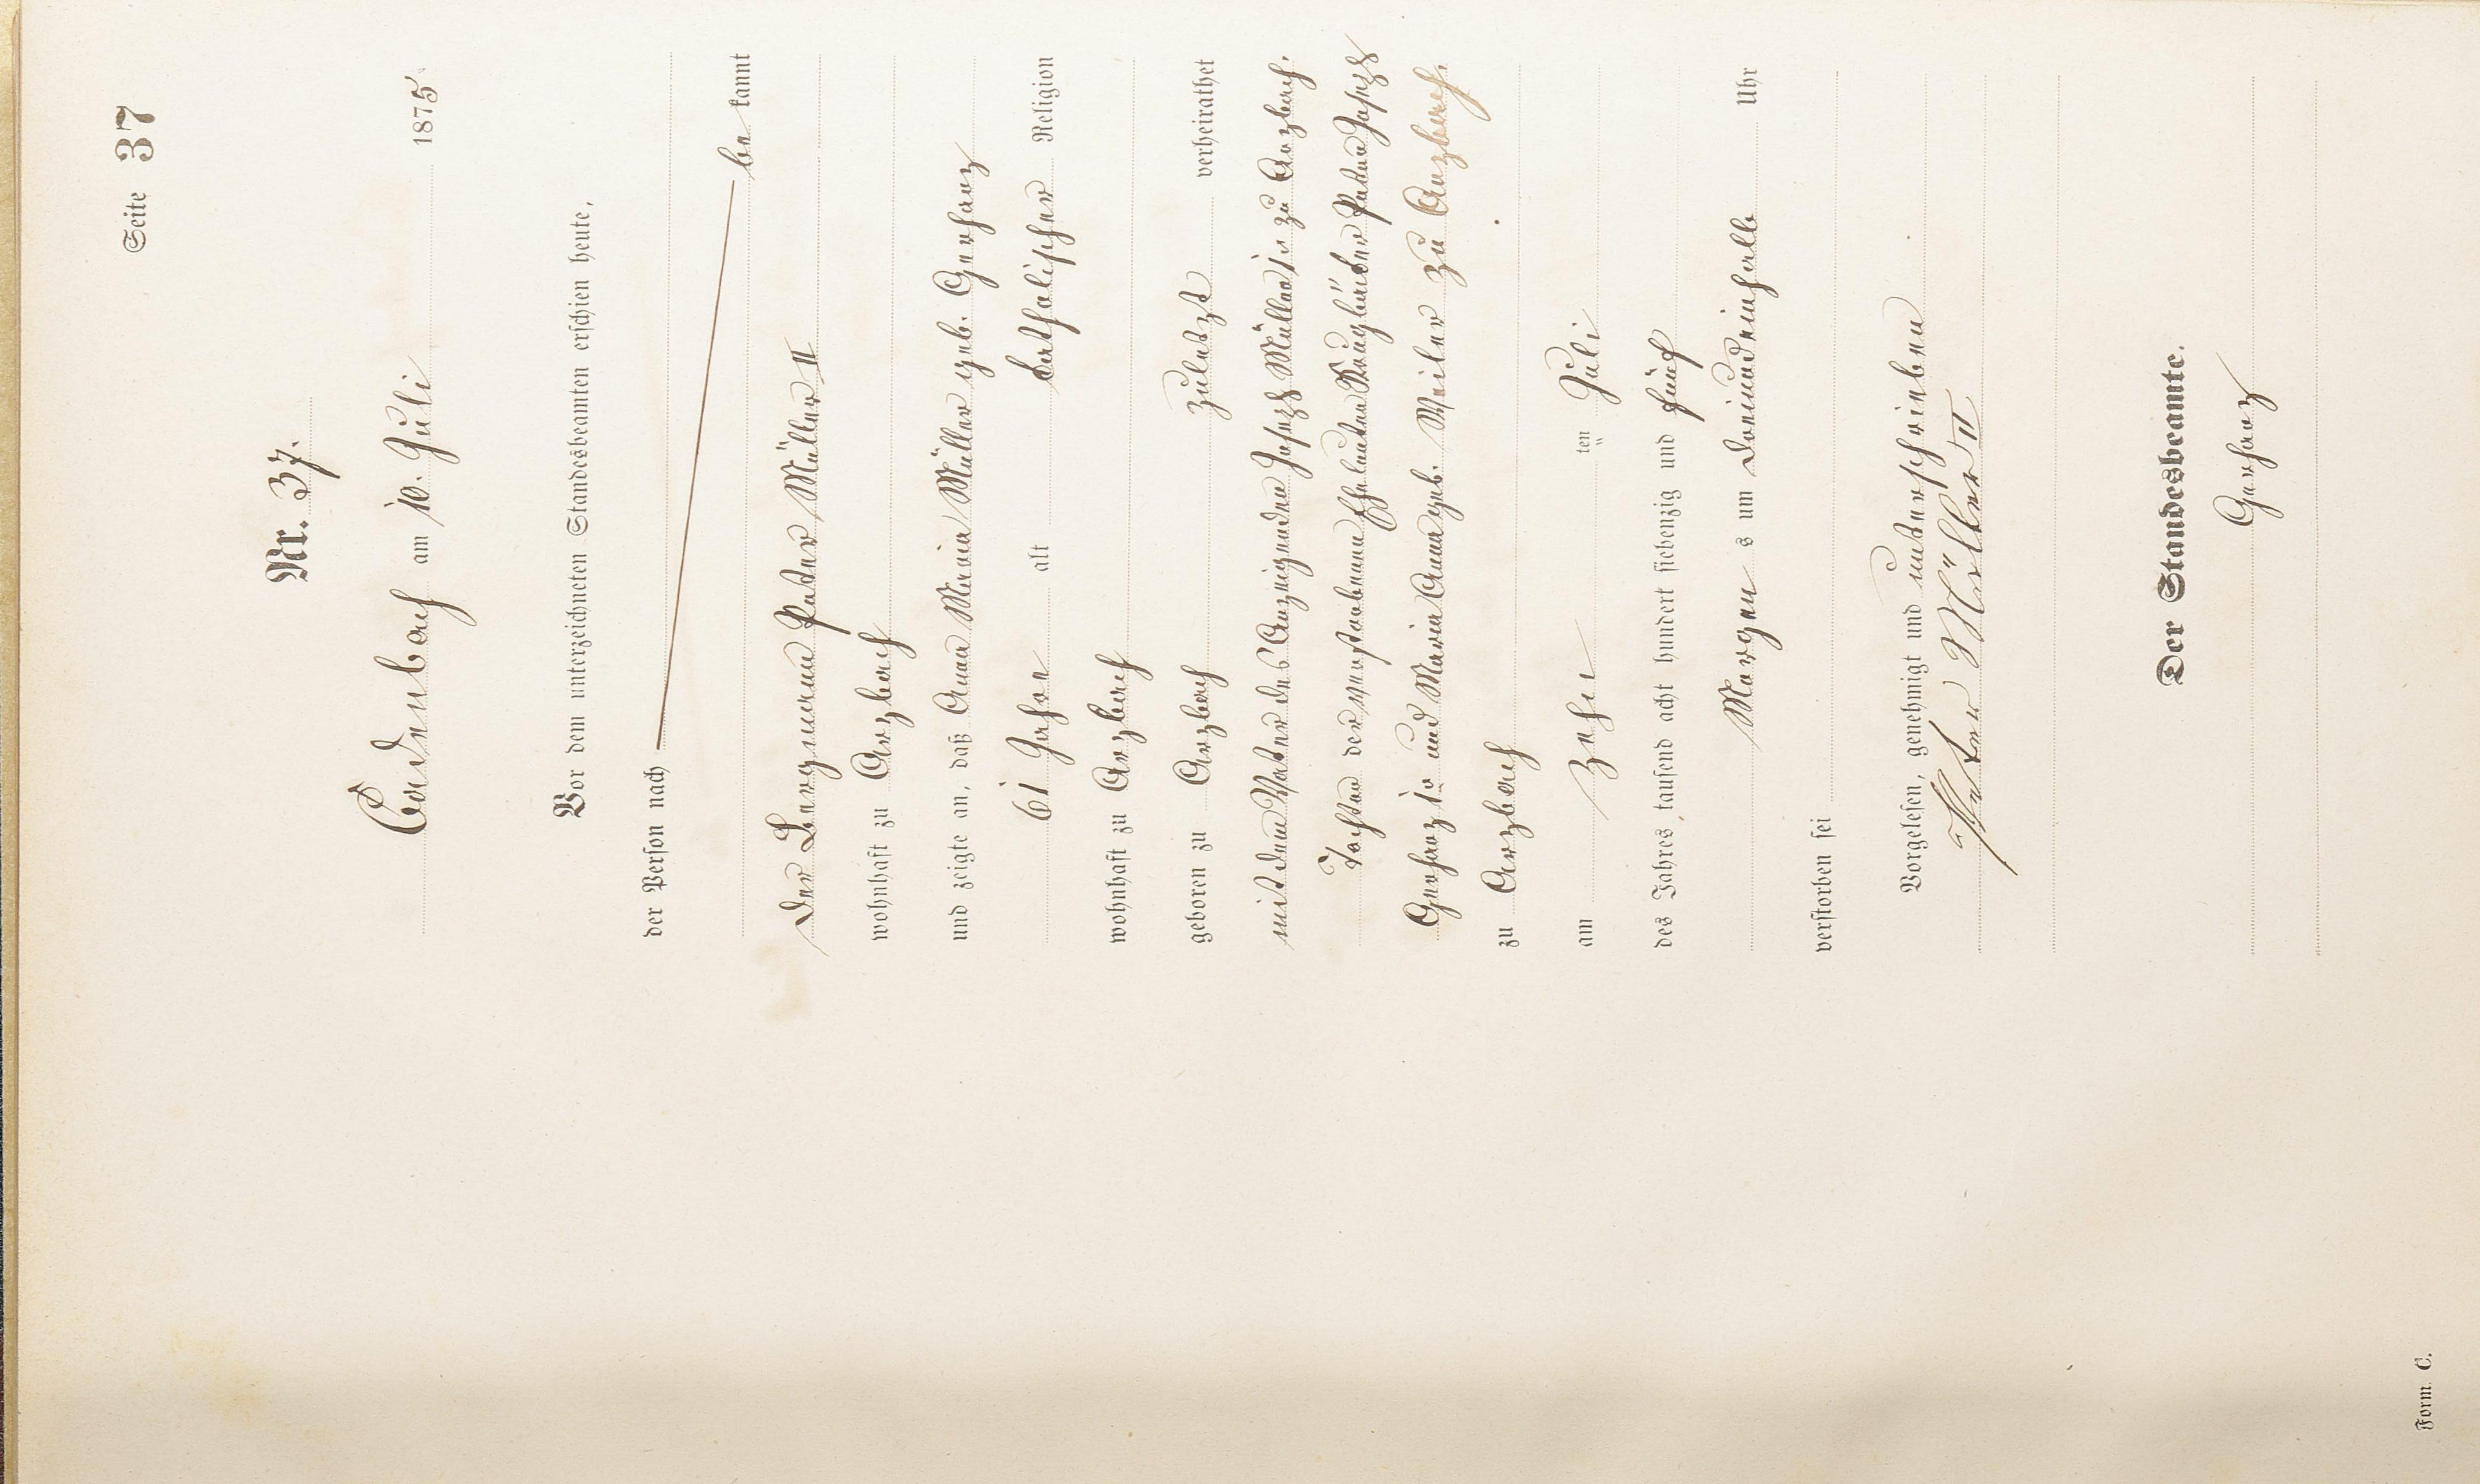 Seite 37
Nr. 37.
Cadenbach am 10. Juli 1875.
Vor dem unterzeichneten Standesbeamten erschien heute,
der Person nach
be kannt
der Bergmann Peter Müller II
wohnhaft zu Arzbach
und zeigte an, daß Anna Maria Müller geb. Gerharz
61 Jahre alt katholischer Religion
wohnhaft zu Arzbach
geboren zu Arzbach zuletzt verheirathet
mit dem Vater des Anzeigenden Joseph Müller zu Arzbach.
Tochter der verstorbenen Eheleute Peter Joseph
Gerharz und Maria Anna geb. Weiler zu Arzbach.
zu Arzbach
am Zehn ten Juli
des Jahres tausend acht hundert siebenzig und fünf
Morgen s um dreiundeinhalb Uhr
verstorben sei
Vorgelesen, genehmigt und unterschrieben
Peter Müller II
Der Standesbeamte.
Gerharz
Form. C.